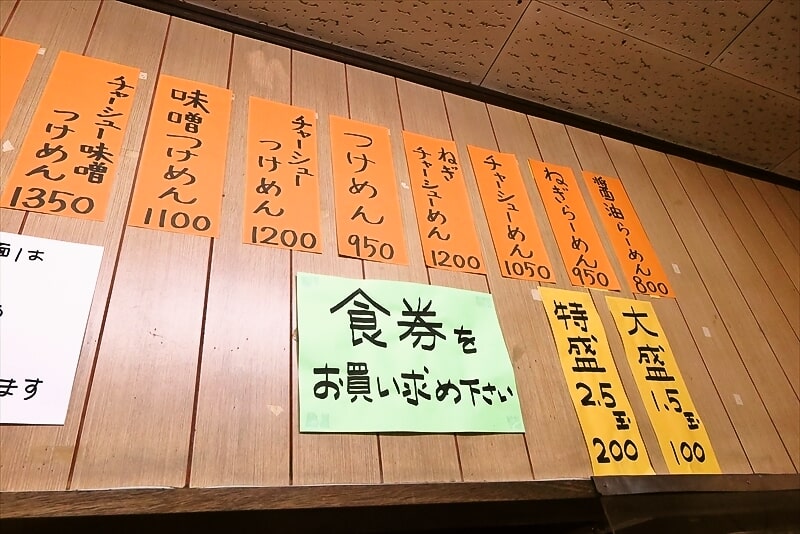 醤油らーめん
800
ねぎらーめん
950
チャーシューめん
1050
ねぎ
チャーシューめん
1200
つけめん
950
チャーシュー
つけめん
1200
味噌つけめん
1100
チャーシュー味噌
つけめん
1350
大盛
1.5玉
100
特盛
2.5玉
200
食券を
お買い求め下さい
ます